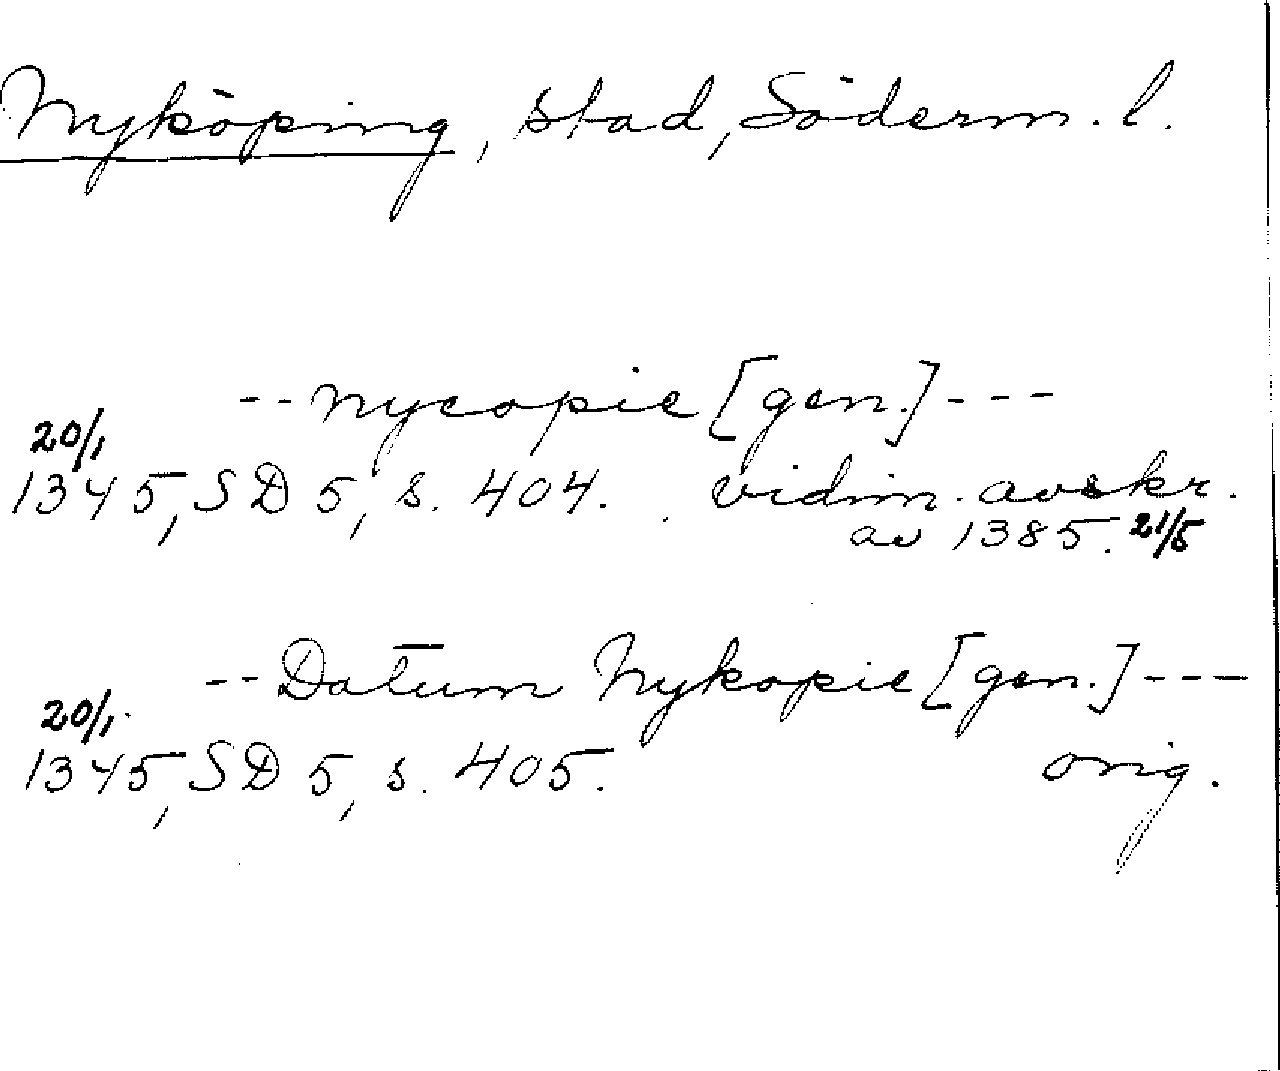 Nyköping, stad, Söderm. l.
-- nycopie [gen.] ---
20/1
1345, SD 5, s. 404. vidim. avskr.
av 1385. 21/5
-- Datum Nykopie [gen.] ---
20/1.
1345, SD 5, s. 405. orig.